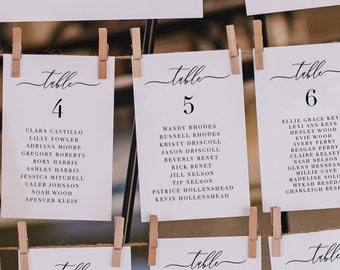 table
4
CLARA CASTILLO
LILLY FOWLER
ADRIANA MOORE
GREGORY ROBERTS
RORY HARRIS
ASHLEY HARRIS
JESSICA MITCHELL
CALEB JOHNSON
NOAH WOOD
SPENCER KLEIN
table
5
MANDY RHODES
RUSSELL RHODES
KRISTY DRISCOLL
JASON DRISCOLL
BEVERLY BENET
RICK BENET
JILL NELSON
TIP NELSON
PATRICE HOLLENSHEAD
KEVIN HOLLENSHEAD
table
6
ELLIE GRACE KEY
LEXI ANN KESS
HENSLEY WOOD
EVIE WOOD
AVERY PERRY
REAGAN PERRY
CLAIRE KELSEY
NASH NELSON
GLENN HENNESS
MILLIE CAVE
MADELINE SOLO
MYKAH BESED
CHARLEIGH BESE
table
table
table